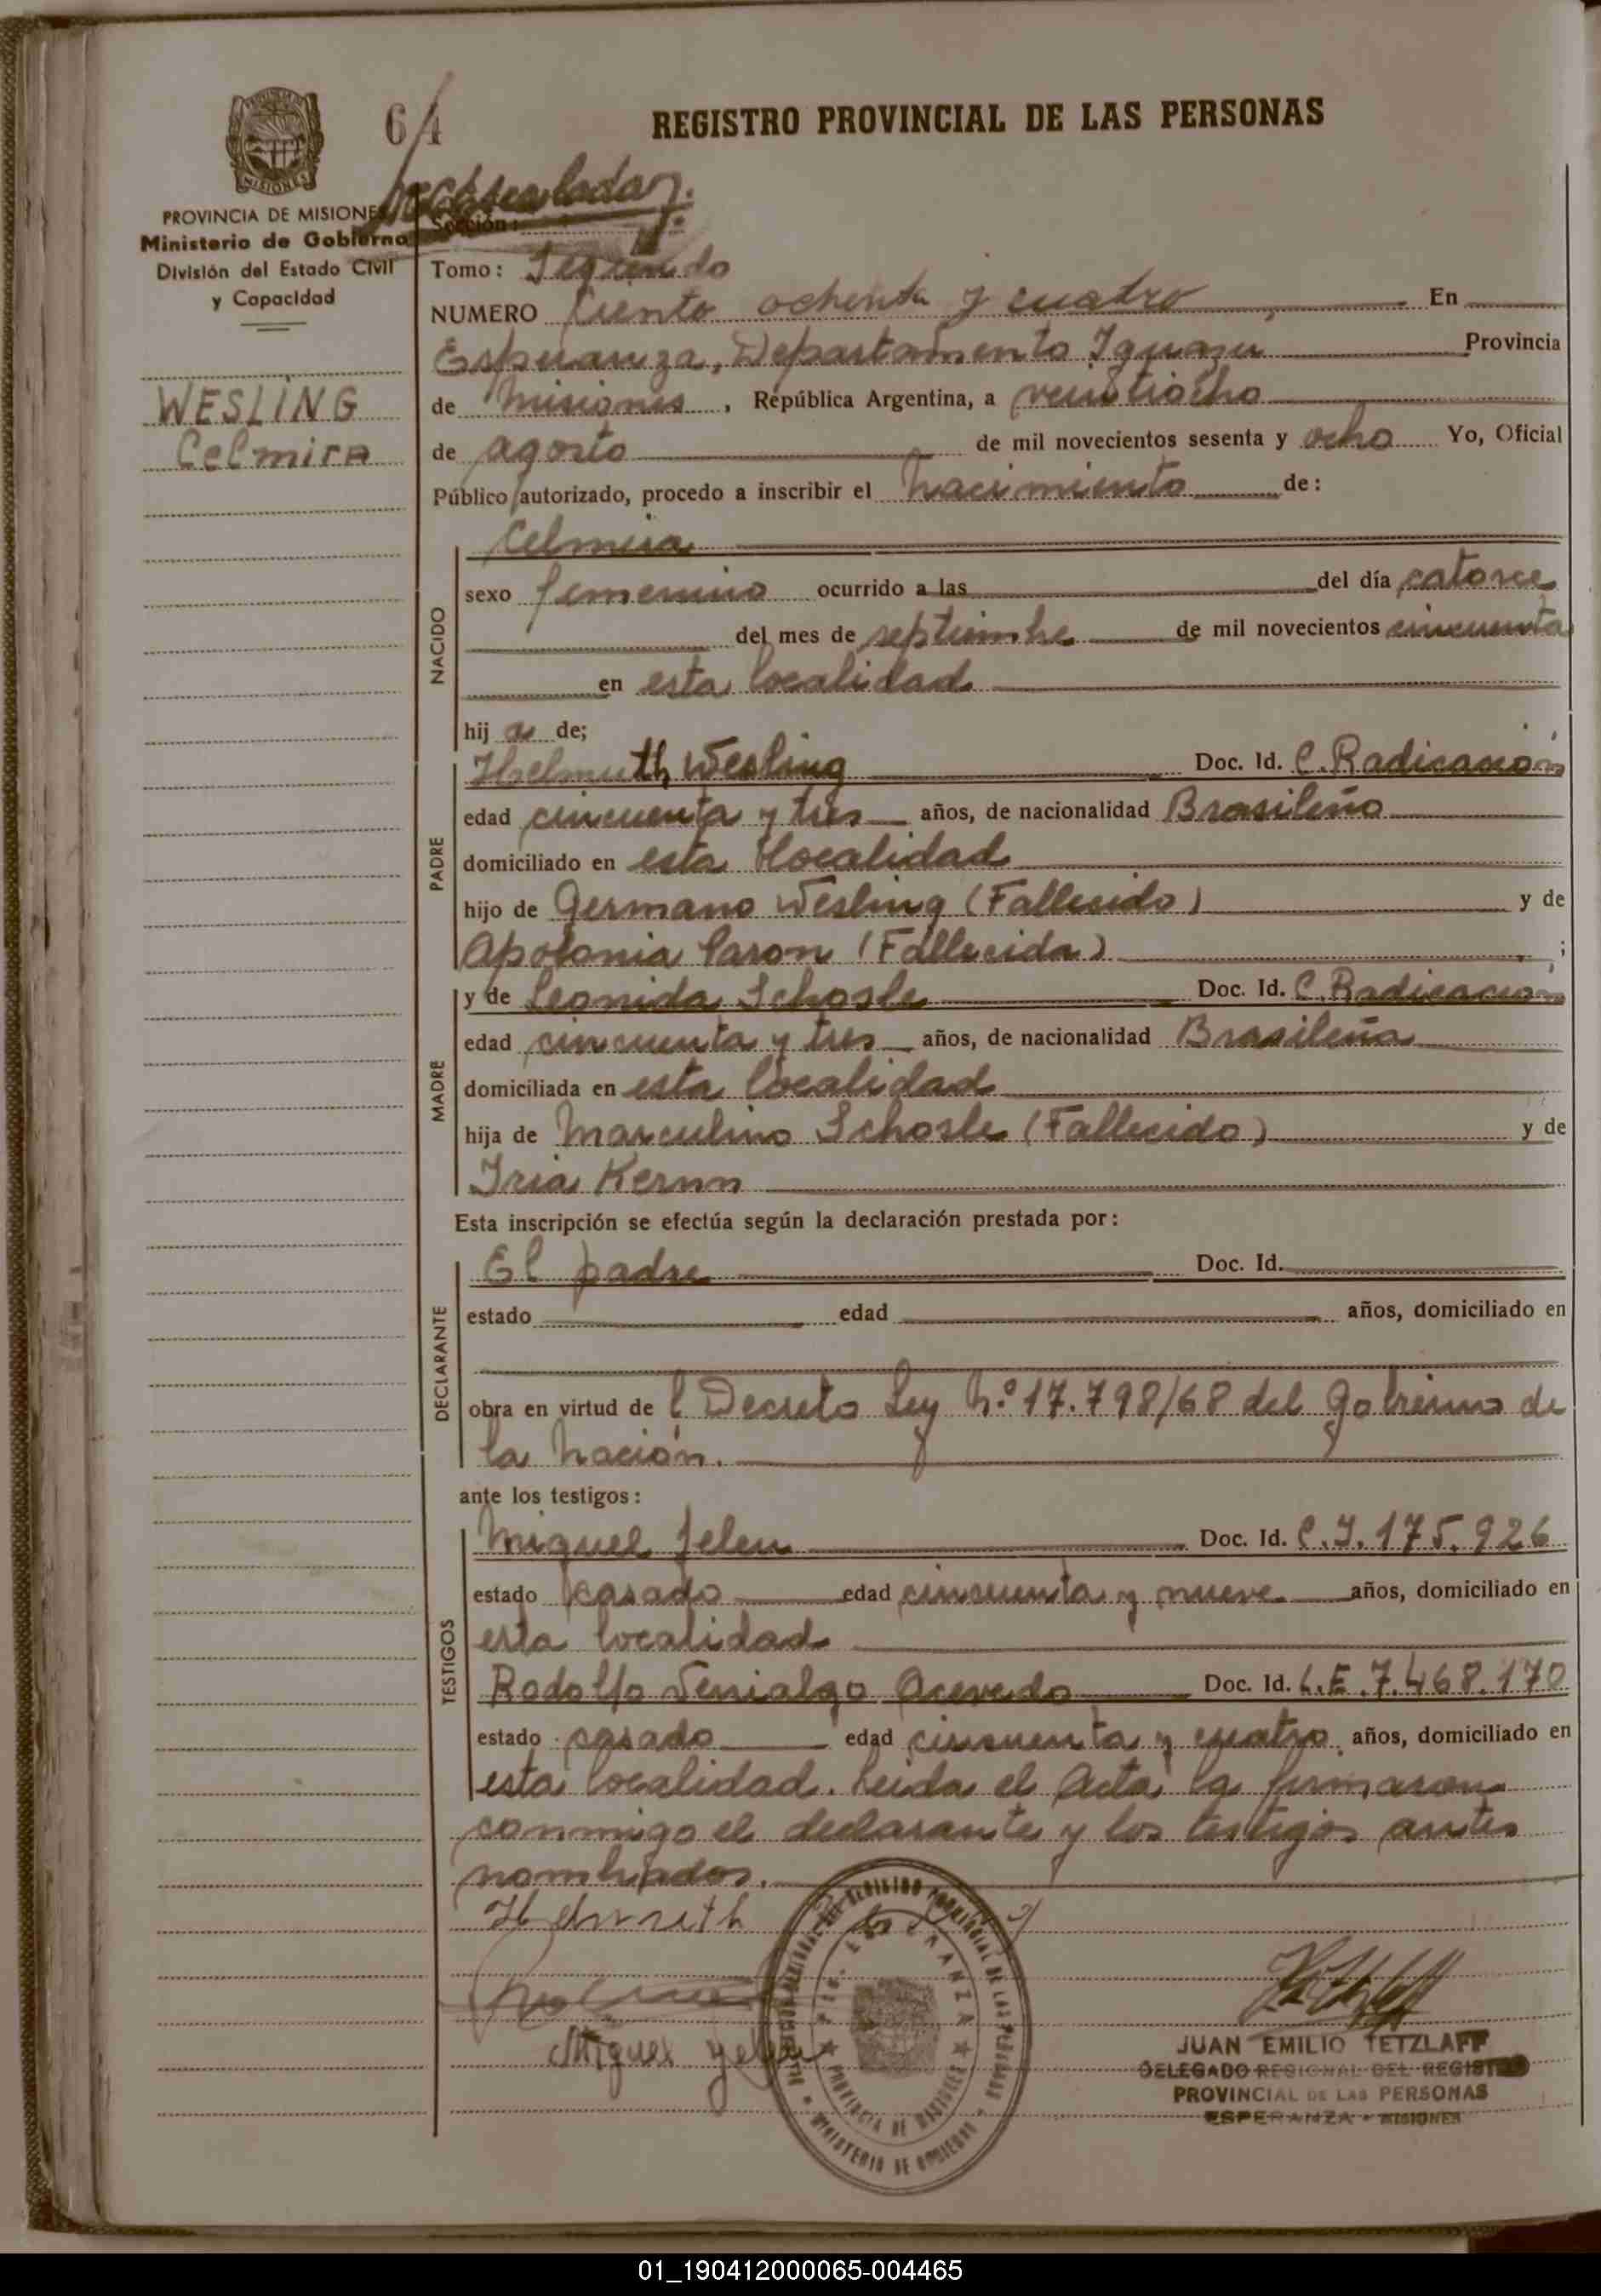 64
REGISTRO PROVINCIAL DE LAS PERSONAS
MISIONES
PROVINCIA DE MISIONES
Ministerio de Gobierno
División del Estado Civil
y Capacidad
WESLING
Celmira
Sección:
Tomo: Segundo
NUMERO Ciento ochenta y cuatro En
Esperanza, Departamento Iguazu Provincia
de Misiones, República Argentina, a veintiocho
de agosto de mil novecientos sesenta y ocho Yo, Oficial
Público autorizado, procedo a inscribir el nacimiento de:
NACIDO
Celmira
sexo femenino ocurrido a las del día catorce
del mes de septiembre de mil novecientos cincuenta
en esta localidad
hij a de;
PADRE
Helmuth Wesling Doc. Id. C. Radicación
edad cincuenta y tres años, de nacionalidad Brasileño
domiciliado en esta localidad
hijo de Germano Wesling (Fallecido) y de
Apolonia (Fallecida) ;
MADRE
y de Leonida Schosle Doc. Id. C. Radicación
edad cincuenta y tres años, de nacionalidad Brasileña
domiciliada en esta localidad
hija de Marculino Schosle (Fallecido) y de
Iria Kernn
Esta inscripción se efectúa según la declaración prestada por:
DECLARANTE
El padre Doc. Id.
estado edad años, domiciliado en
obra en virtud de l Decreto Ley N.º 17.798/68 del Gobierno de
la Nación.
ante los testigos:
TESTIGOS
Miguel Jelen Doc. Id. C.I. 175.926
estado casado edad cincuenta y nueve años, domiciliado en
esta localidad
Rodolfo Venialgo Acevedo Doc. Id. L.E. 7.468.170
estado casado edad cincuenta y cuatro años, domiciliado en
esta localidad. Leida el Acta la firmaron
conmigo el declarante y los testigos antes
nombrados.
Miguel
ESPERANZA
PROVINCIA DE MISIONES
MINISTERIO DE GOBIERNO
JUAN EMILIO TETZLAFF
DELEGADO REGIONAL DEL REGISTRO
PROVINCIAL DE LAS PERSONAS
ESPERANZA - MISIONES
01_190412000065-004465